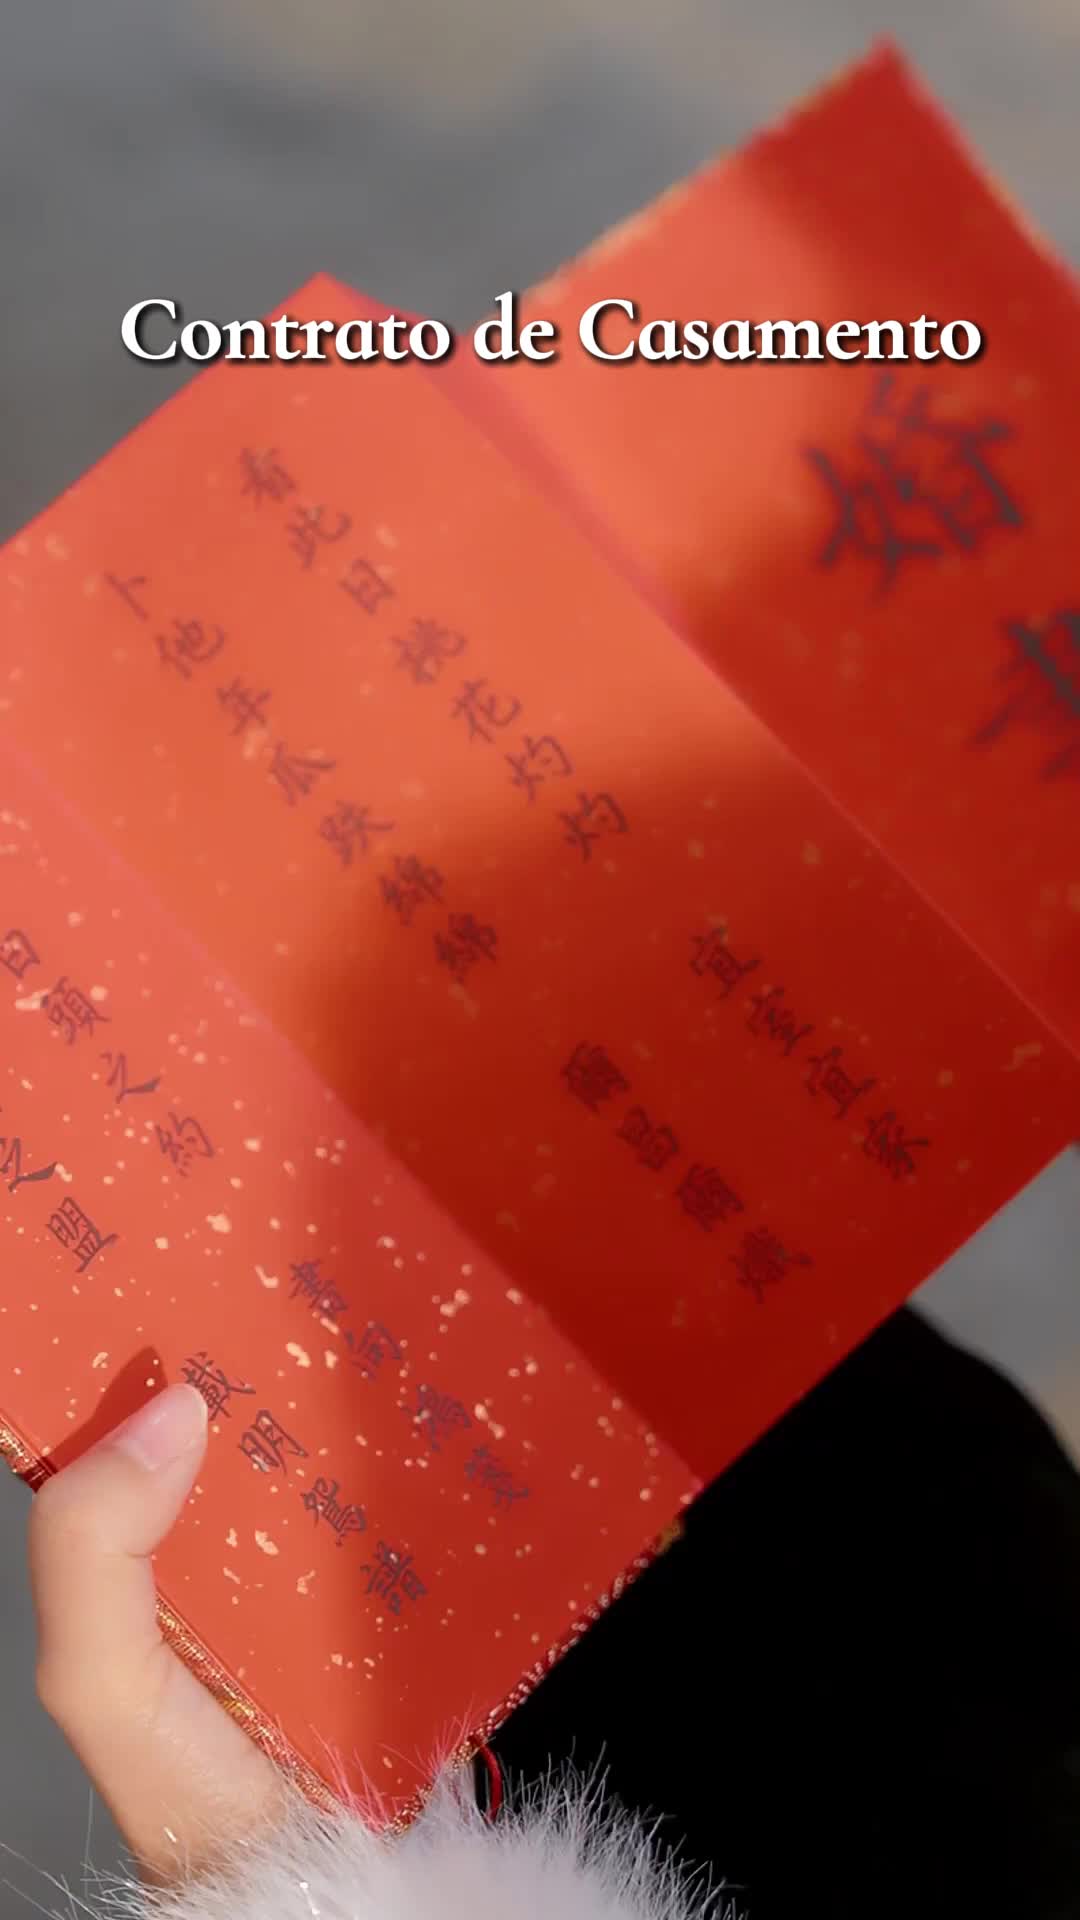 Contrato de Casamento
婚書
看此日桃花灼灼 宜室宜家
卜他年瓜跌綿綿 爾昌爾熾
白頭之約 書向鴻箋
之盟 載明鴛譜